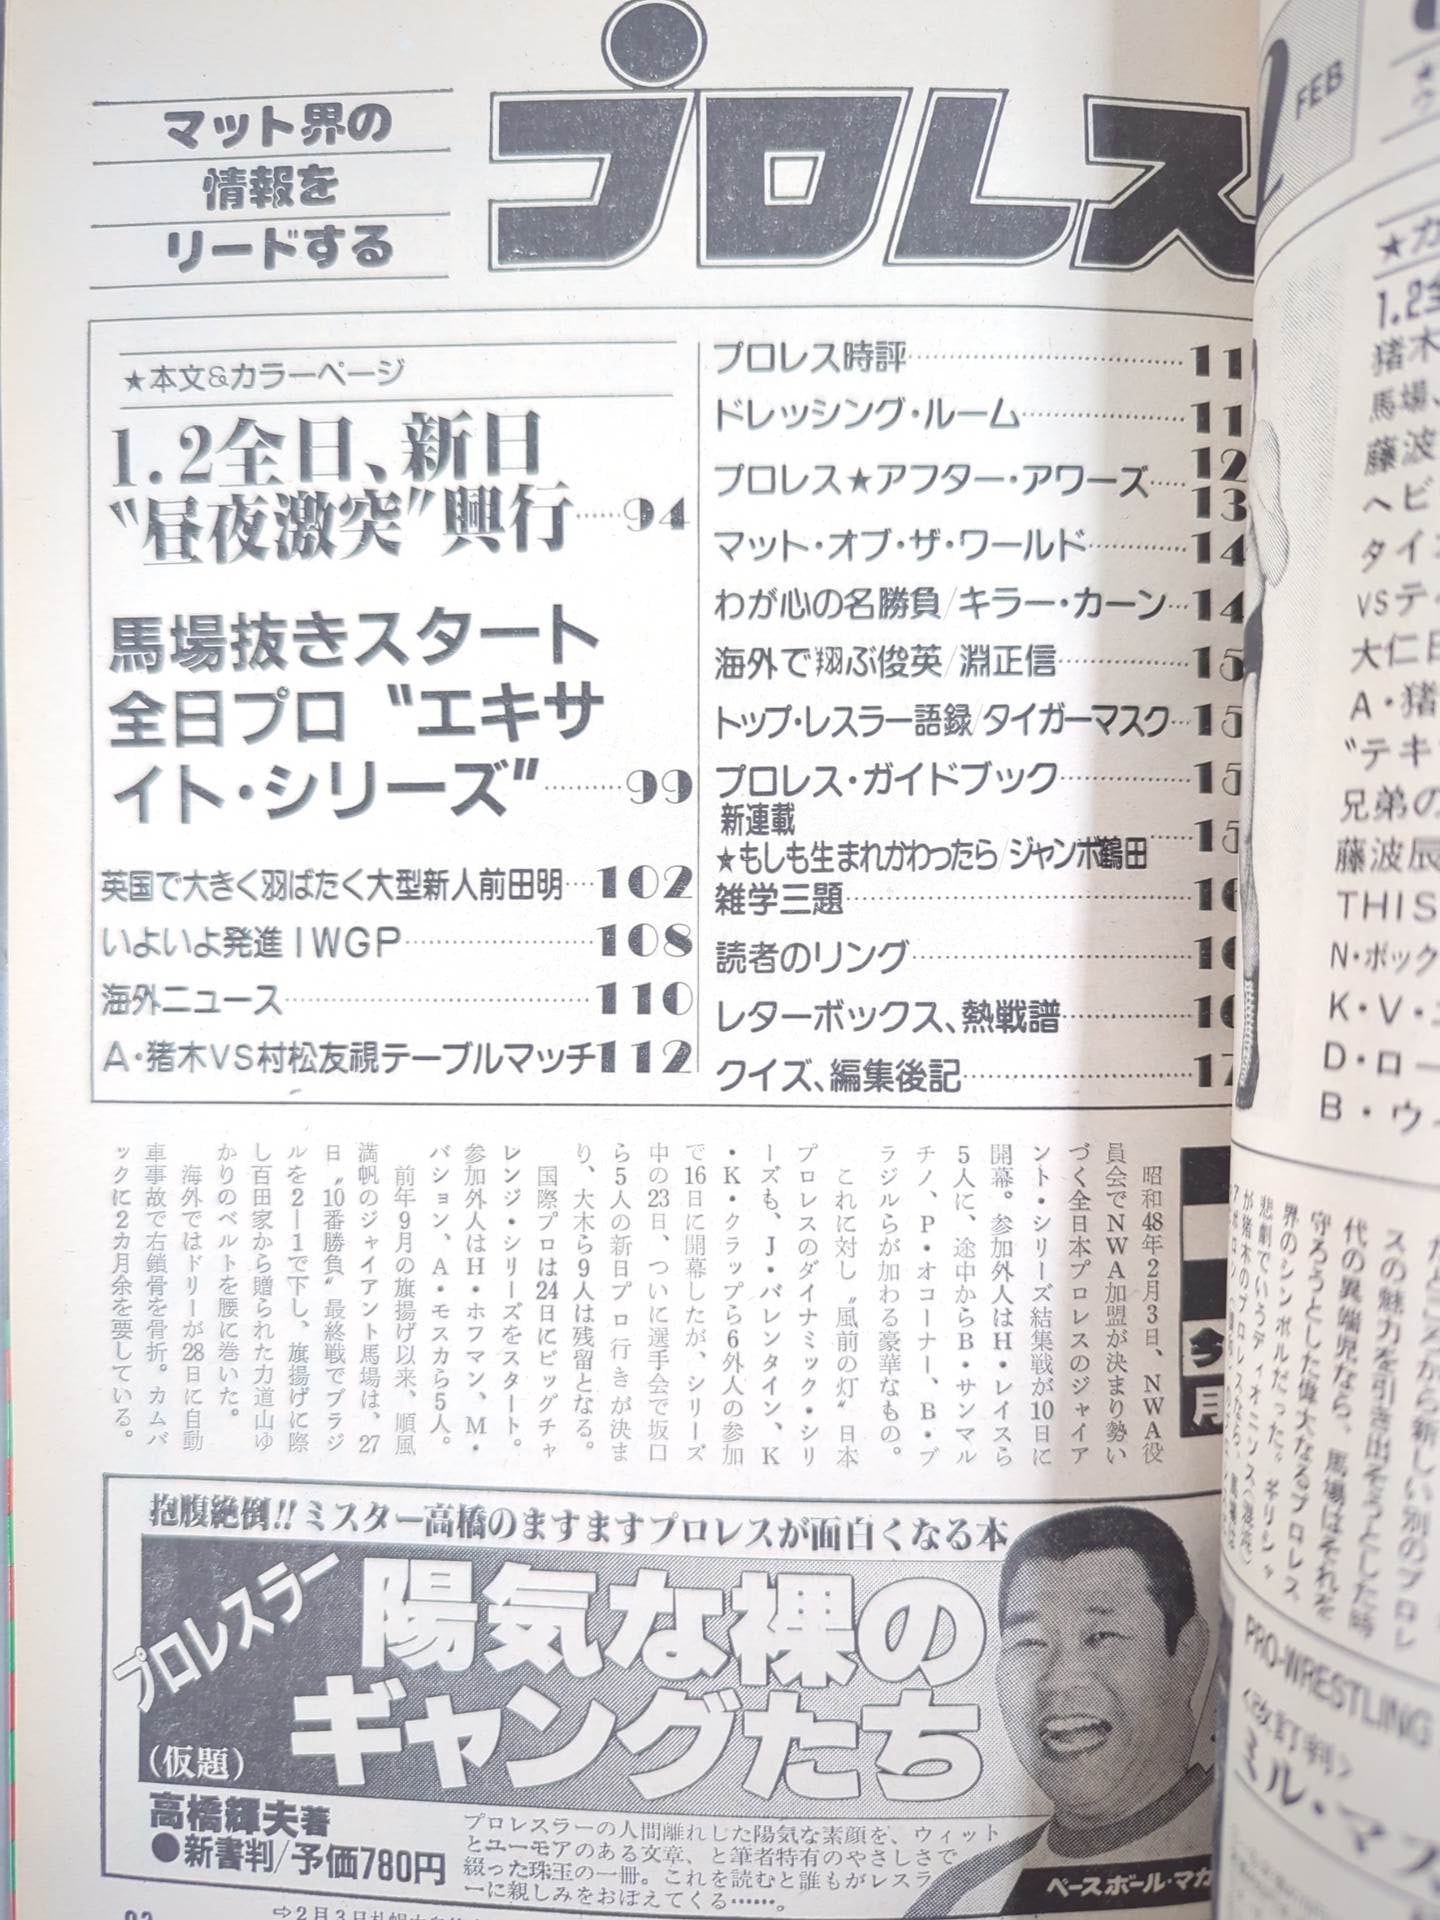 マット界の
情報を
リードする
プロレス
★本文&カラーページ
1.2全日、新日
〝昼夜激突〟興行……94
馬場抜きスタート
全日プロ〝エキサ
イト・シリーズ〟…………99
英国で大きく羽ばたく大型新人前田明…102
いよいよ発進IWGP…………108
海外ニュース…………110
A・猪木VS村松友視テーブルマッチ112
プロレス時評…………11
ドレッシング・ルーム…………11
プロレス★アフター・アワーズ……12
13
マット・オブ・ザ・ワールド…………14
わが心の名勝負/キラー・カーン…14
海外で翔ぶ俊英/淵正信…………15
トップ・レスラー語録/タイガーマスク…15
プロレス・ガイドブック…………15
新連載
★もしも生まれかわったら/ジャンボ鶴田……15
雑学三題…………16
読者のリング…………16
レターボックス、熱戦譜…………16
クイズ、編集後記…………17
昭和48年2月3日、NWA役
員会でNWA加盟が決まり勢い
づく全日本プロレスのジャイア
ント・シリーズ結集戦が10日に
開幕。参加外人はH・レイスら
5人に、途中からB・サンマル
チノ、P・オコーナー、B・ブ
ラジルらが加わる豪華なもの。
これに対し〝風前の灯〟日本
プロレスのダイナミック・シリ
ーズも、J・バレンタイン、K
・K・クラップら6外人の参加
で16日に開幕したが、シリーズ
中の23日、ついに選手会で坂口
ら5人の新日プロ行きが決ま
り、大木ら9人は残留となる。
国際プロは24日にビッグチャ
レンジ・シリーズをスタート。
参加外人はH・ホフマン、M・
バション、A・モスカら5人。
前年9月の旗揚げ以来、順風
満帆のジャイアント馬場は、27
日〝10番勝負〟最終戦でブラジ
ルを2―1で下し、旗揚げに際
し百田家から贈られた力道山ゆ
かりのベルトを腰に巻いた。
海外ではドリーが28日に自動
車事故で右鎖骨を骨折。カムバ
ックに2カ月余を要している。
今
月
抱腹絶倒!!ミスター高橋のますますプロレスが面白くなる本
プロレスラー
陽気な裸の
ギャングたち
(仮題)
高橋輝夫著
●新書判/予価780円
プロレスラーの人間離れした陽気な素顔を、ウィット
とユーモアのある文章、と筆者特有のやさしさで
綴った珠玉の一冊。これを読むと誰もがレスラ
ーに親しみをおぼえてくる……。
ベースボール・マガ
2 FEB
★カ
1.2全
猪木
馬場、
藤波
ヘビ
タイ
VSテ
大仁田
A・猪
〝テキ
兄弟の
藤波辰
THIS
N・ボック
K・V・
D・ロー
B・ウ
スの魅力を引き出そうとした時
代の異端児なら、馬場はそれを
守ろうとした偉大なるプロレス
界のシンボルだった。ギリシャ
PRO-WRESTLING
<改訂判>
ミル・マス